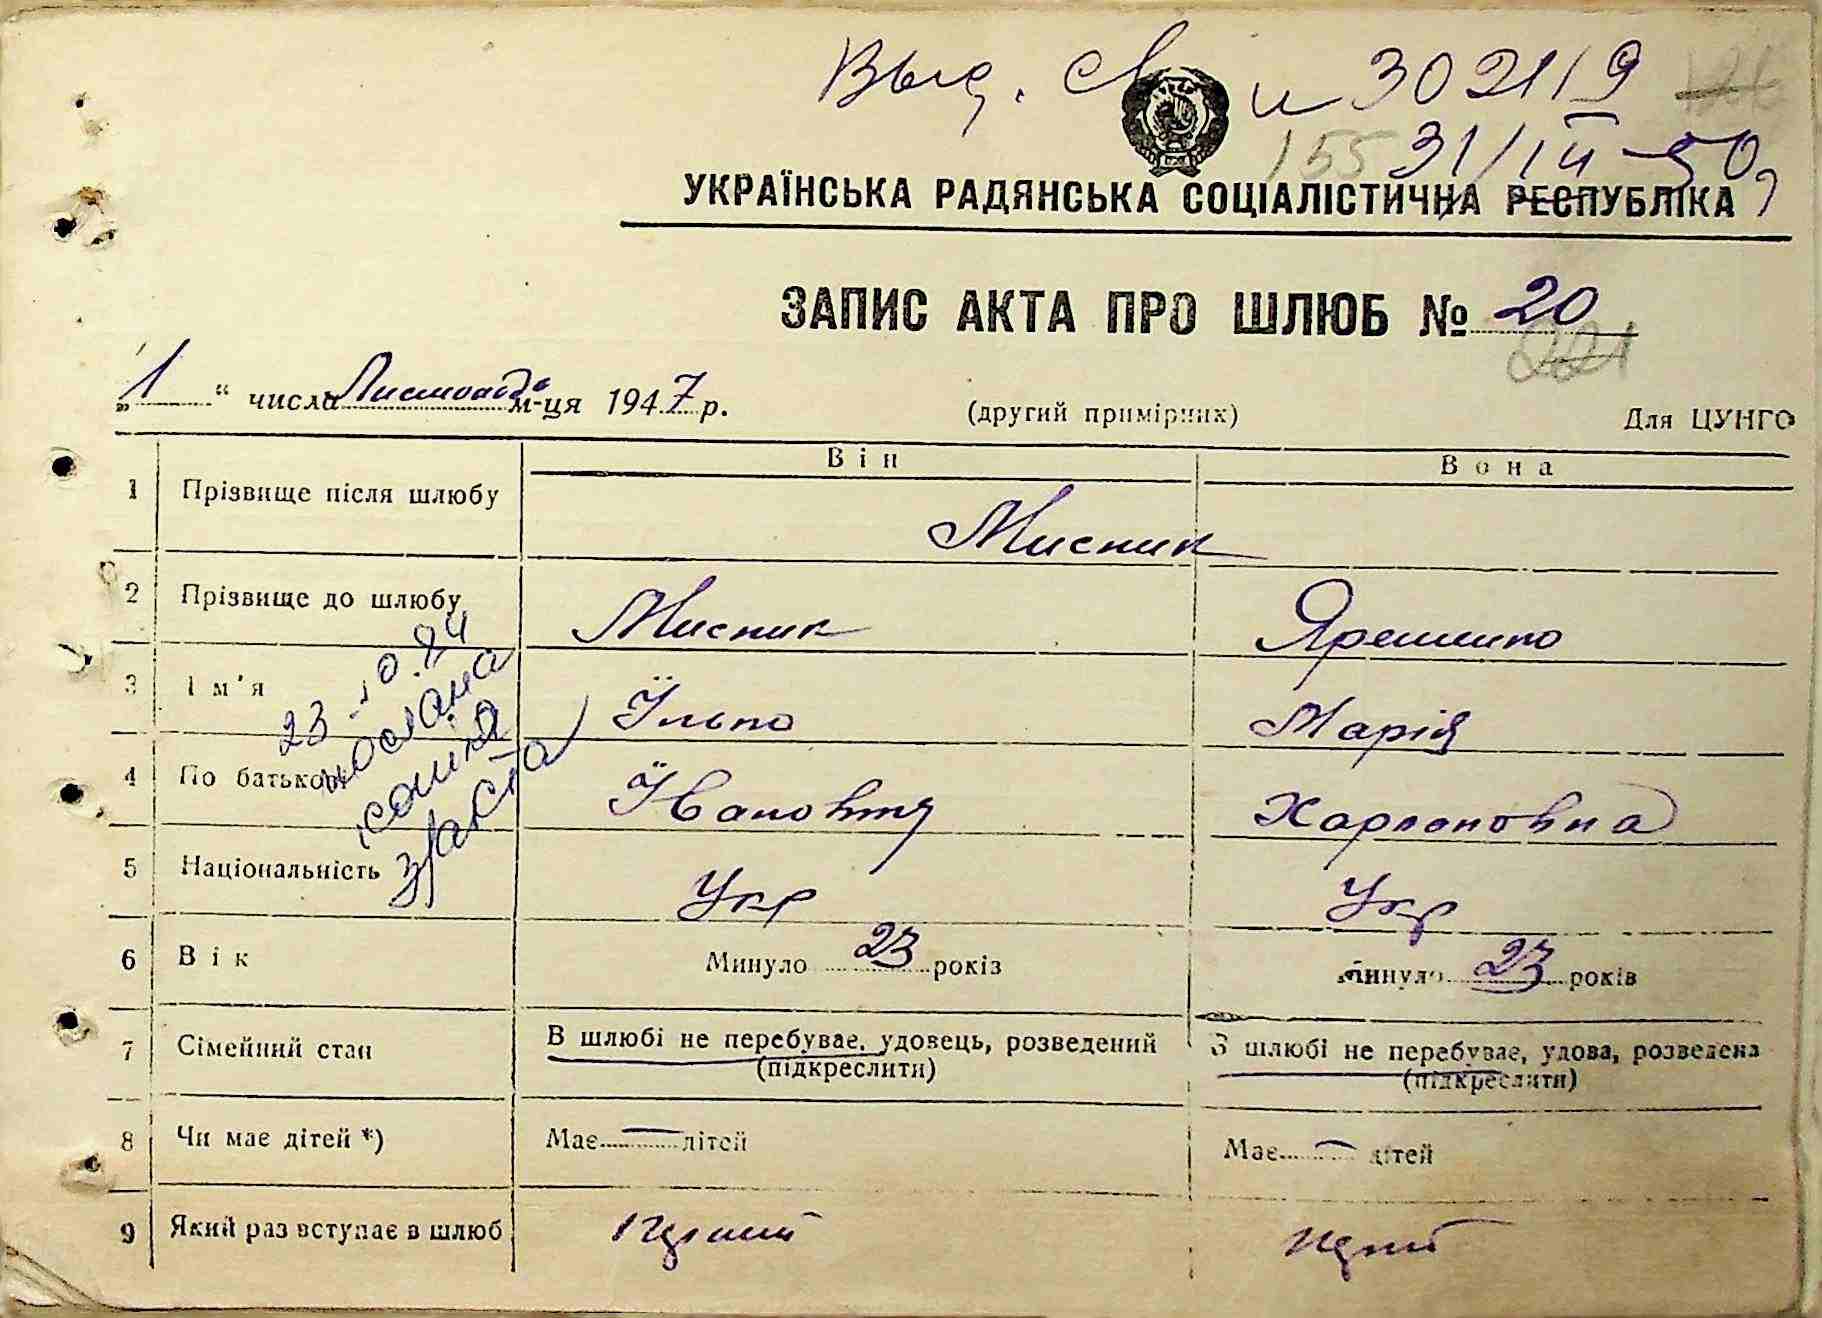 Выд. св и 302119
126
155 31/III-50
УКРАЇНСЬКА РАДЯНСЬКА СОЦІАЛІСТИЧНА РЕСПУБЛІКА
ЗАПИС АКТА ПРО ШЛЮБ № 20
221
„1“ числа Листопада м-ця 1947 р. (другий примірник) Для ЦУНГО
Він Вона
1 Прізвище після шлюбу Мисник
2 Прізвище до шлюбу Мисник Ярешко
3 Ім'я Їлько Марія
4 По батькові Їванович Харлановна
5 Національність Укр Укр
6 Вік Минуло 23 років Минуло 23 років
7 Сімейний стан В шлюбі не перебуває, удовець, розведений В шлюбі не перебуває, удова, розведена
(підкреслити) (підкреслити)
8 Чи має дітей *) Має — дітей Має — дітей
9 Який раз вступає в шлюб
23-10.84
послана
копія
з/акта